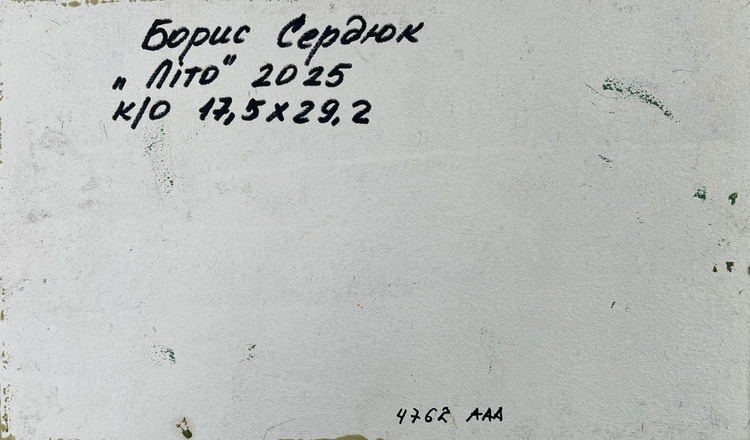 Борис Сердюк
„Літо" 2025
к/о 17,5x29,2
4762 AAA